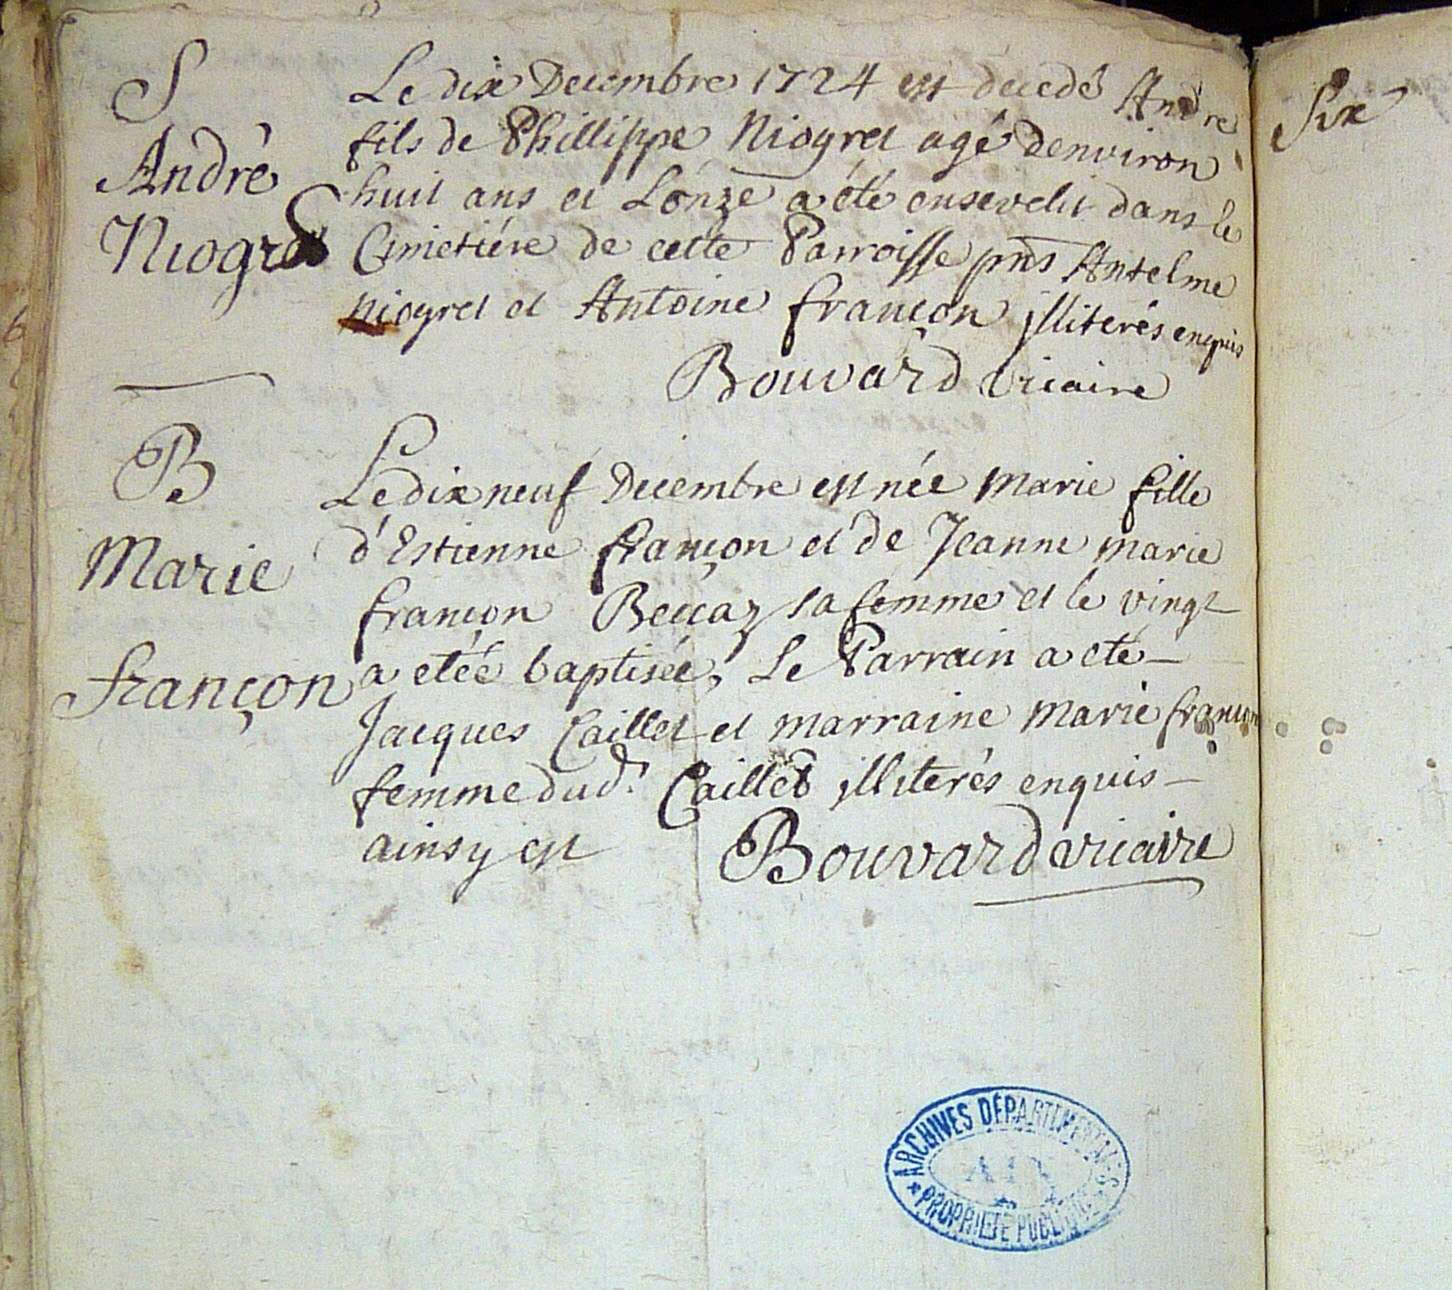 S
André
Niogret
Le dix Decembre 1724 est decedé André
fils de Phillippe Niogret agé denviron
huit ans et L'onze a été ensevelit dans le
Cimetiére de cette Parroisse pnts Antelme
niogret et Antoine françon illiterés enquis
Bouvard vicaire
B
Marie
françon
Le dix neuf Decembre est née Marie fille
d'Estienne françon et de Jeanne marie
françon Beccaz sa femme et le vingt
a etéé baptisée, Le Parrain a eté
Jacques Caillet et marraine Marie françon
femme dud. Caillet illiterés enquis
ainsy est Bouvard vicaire
Six
ARCHIVES DÉPARTEMENTALES
AIN
* PROPRIÉTÉ PUBLIQUE *